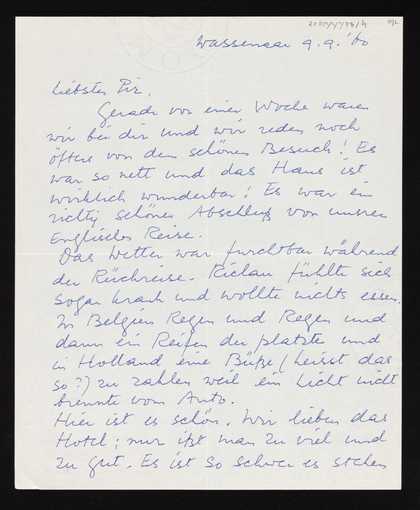 Wassenaar 9.9.'60
liebster Piz.
Gerade vor einer Woche waren
wir bei dir und wir reden noch
öfters von dem schönen Besuch! Es
war so nett und das Haus ist
wirklich wunderbar! Es war ein
richtig schöner Abschluß von unserer
Englischen Reise.
Das Wetter war furchtbar während
der Rückreise. fühlte sich
sogar krank und wollte nichts essen.
In Belgien Regen und Regen und
dann ein Reifen der platzte und
in Holland eine Büße (heisst das
so?) zu zahlen weil ein Licht nicht
brennte vom Auto.
Hier ist es schön. Wir lieben das
Hotel; nur ißt man zu viel und
zu gut. Es ist so schwer es stehen